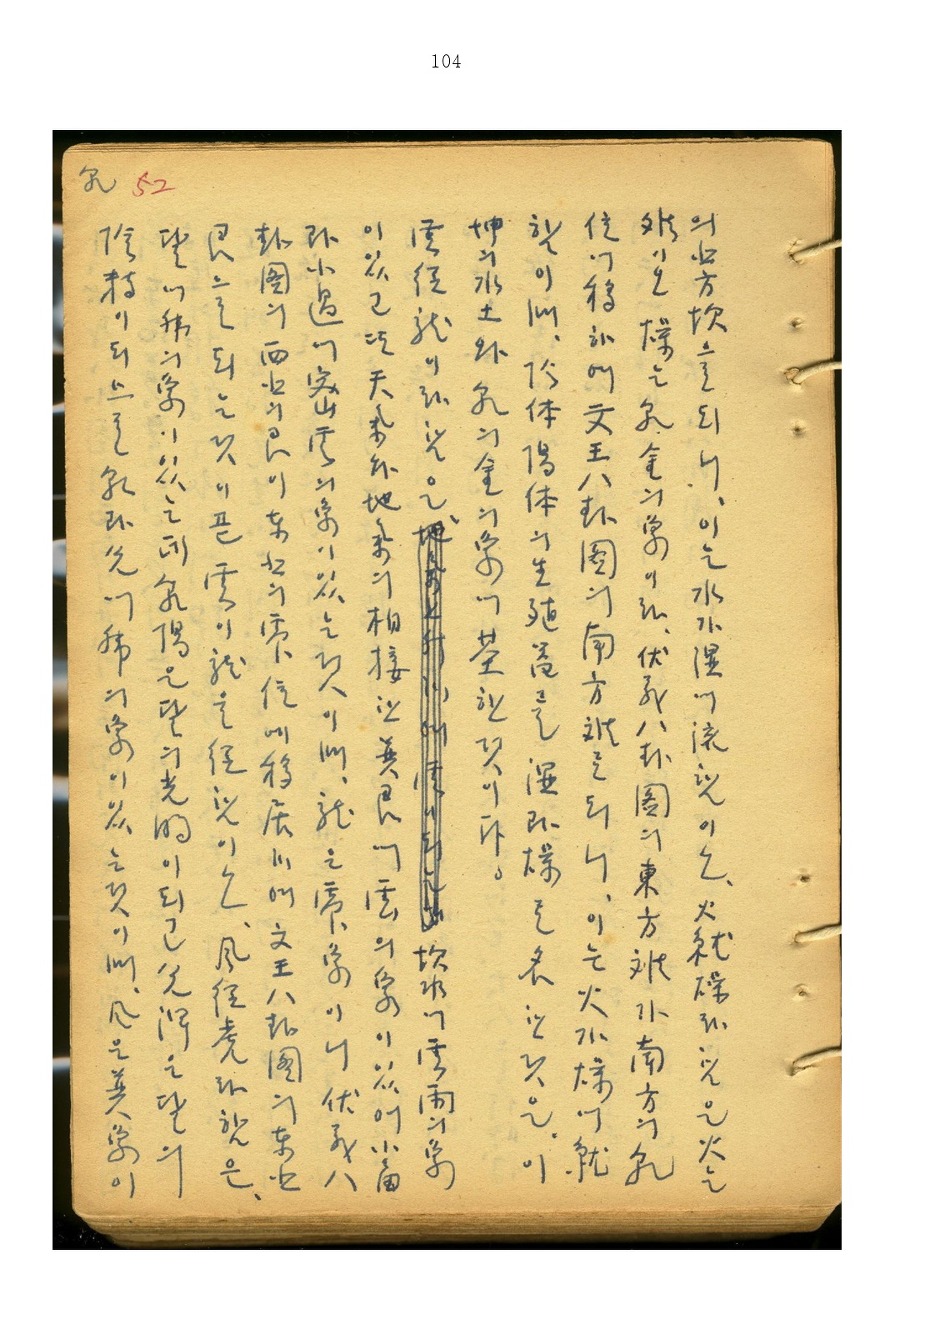 104
乾 52
의 北方 坎으로 되니, 이는 水가 濕에 流함이오, 火就燥라 함은 火는
離오 燥는 乾金의 象이라, 伏羲八卦圖의 東方 離가 南方의 乾
位에 移하야 文王八卦圖의 南方 離로 되니, 이는 火가 燥에 就
함이며, 陰体 陽体의 生殖器를 濕과 燥로 名한 것은, 이
坤의 水土와 乾의 金의 象에 基한 것이다。
雲從龍이라 함은 坎水에 雲雨의 象
이 있고 또 天氣와 地氣의 相接한 巽艮에 雲의 象이 있어 小畜
과 小過에 密雲의 象이 있는 것이며, 龍은 震象이니 伏羲八
卦圖의 西北의 艮이 東北의 震位에 移居하야 文王八卦圖의 東北
艮으로 되는 것이 곧 雲이 龍을 從함이오, 風從虎라 함은,
달에 弦의 象이 있는데 乾陽은 달의 光明이 되고 兌澤은 달의
陰精이 되므로 乾과 兌에 弦의 象이 있는 것이며, 風은 巽象이